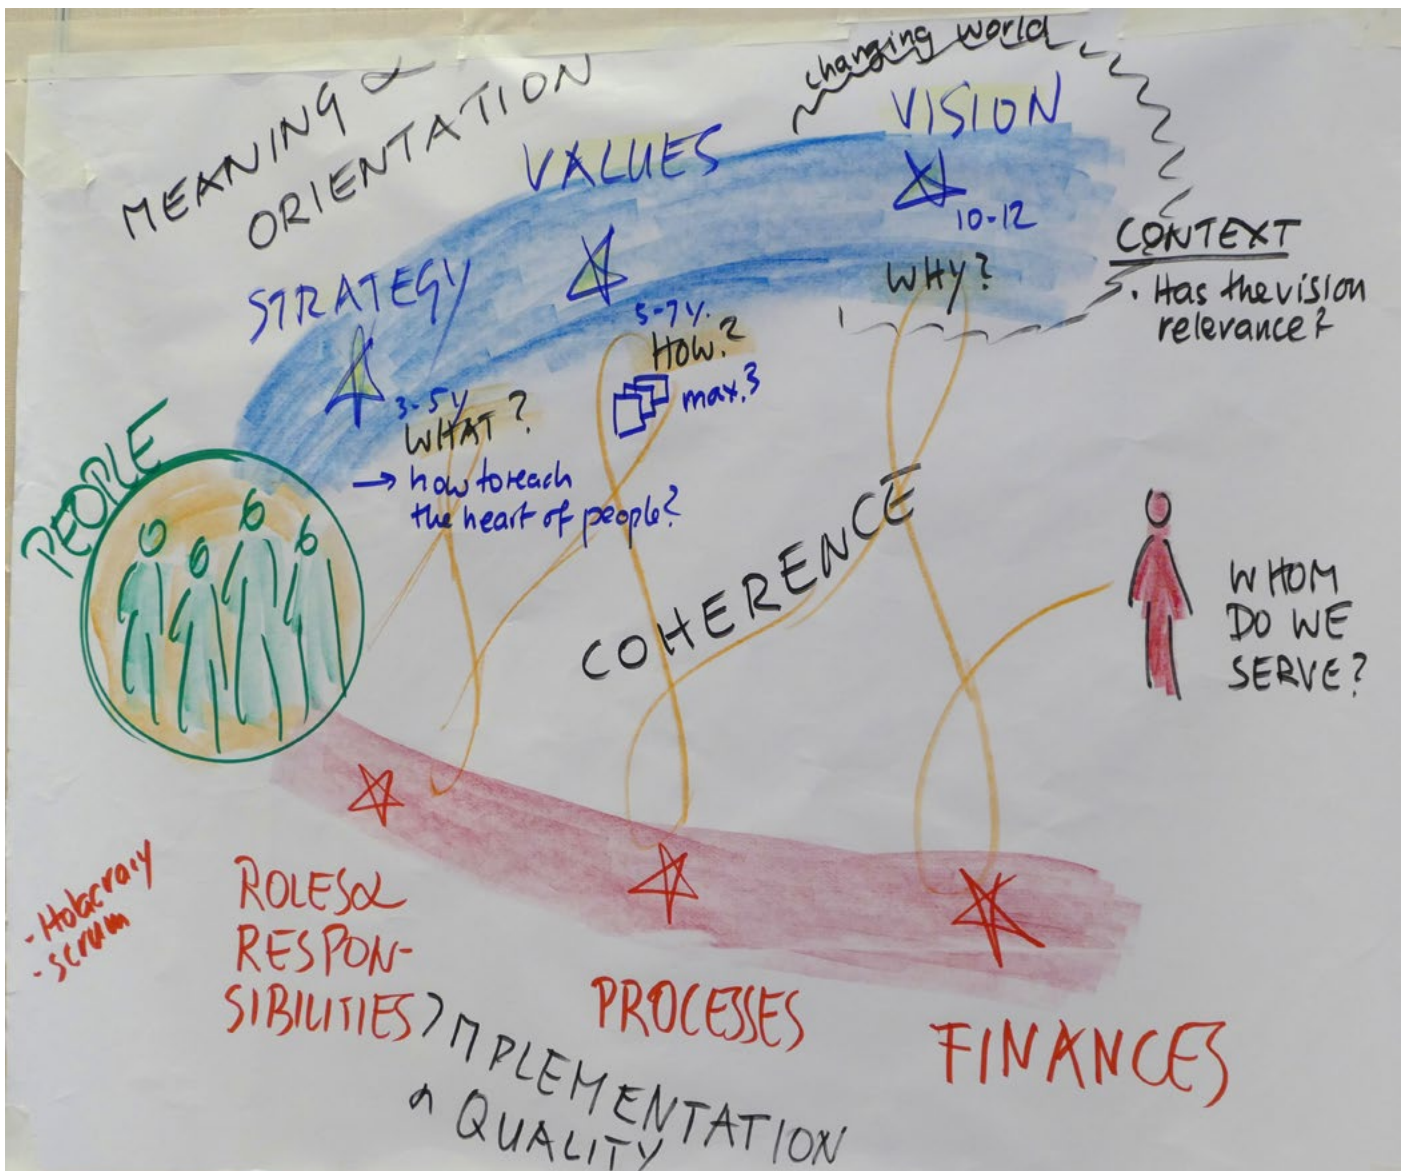 changing world
MEANING &
ORIENTATION
VALUES
VISION
10-12
CONTEXT
· Has the vision
relevance?
WHY?
STRATEGY
5-7 y.
HOW?
max. 3
3-5 y
WHAT?
→ how to reach
the heart of people?
PEOPLE
COHERENCE
WHOM
DO WE
SERVE?
- Holacracy
- scrum
ROLES &
RESPON-
SIBILITIES
PROCESSES
FINANCES
IMPLEMENTATION
& QUALITY